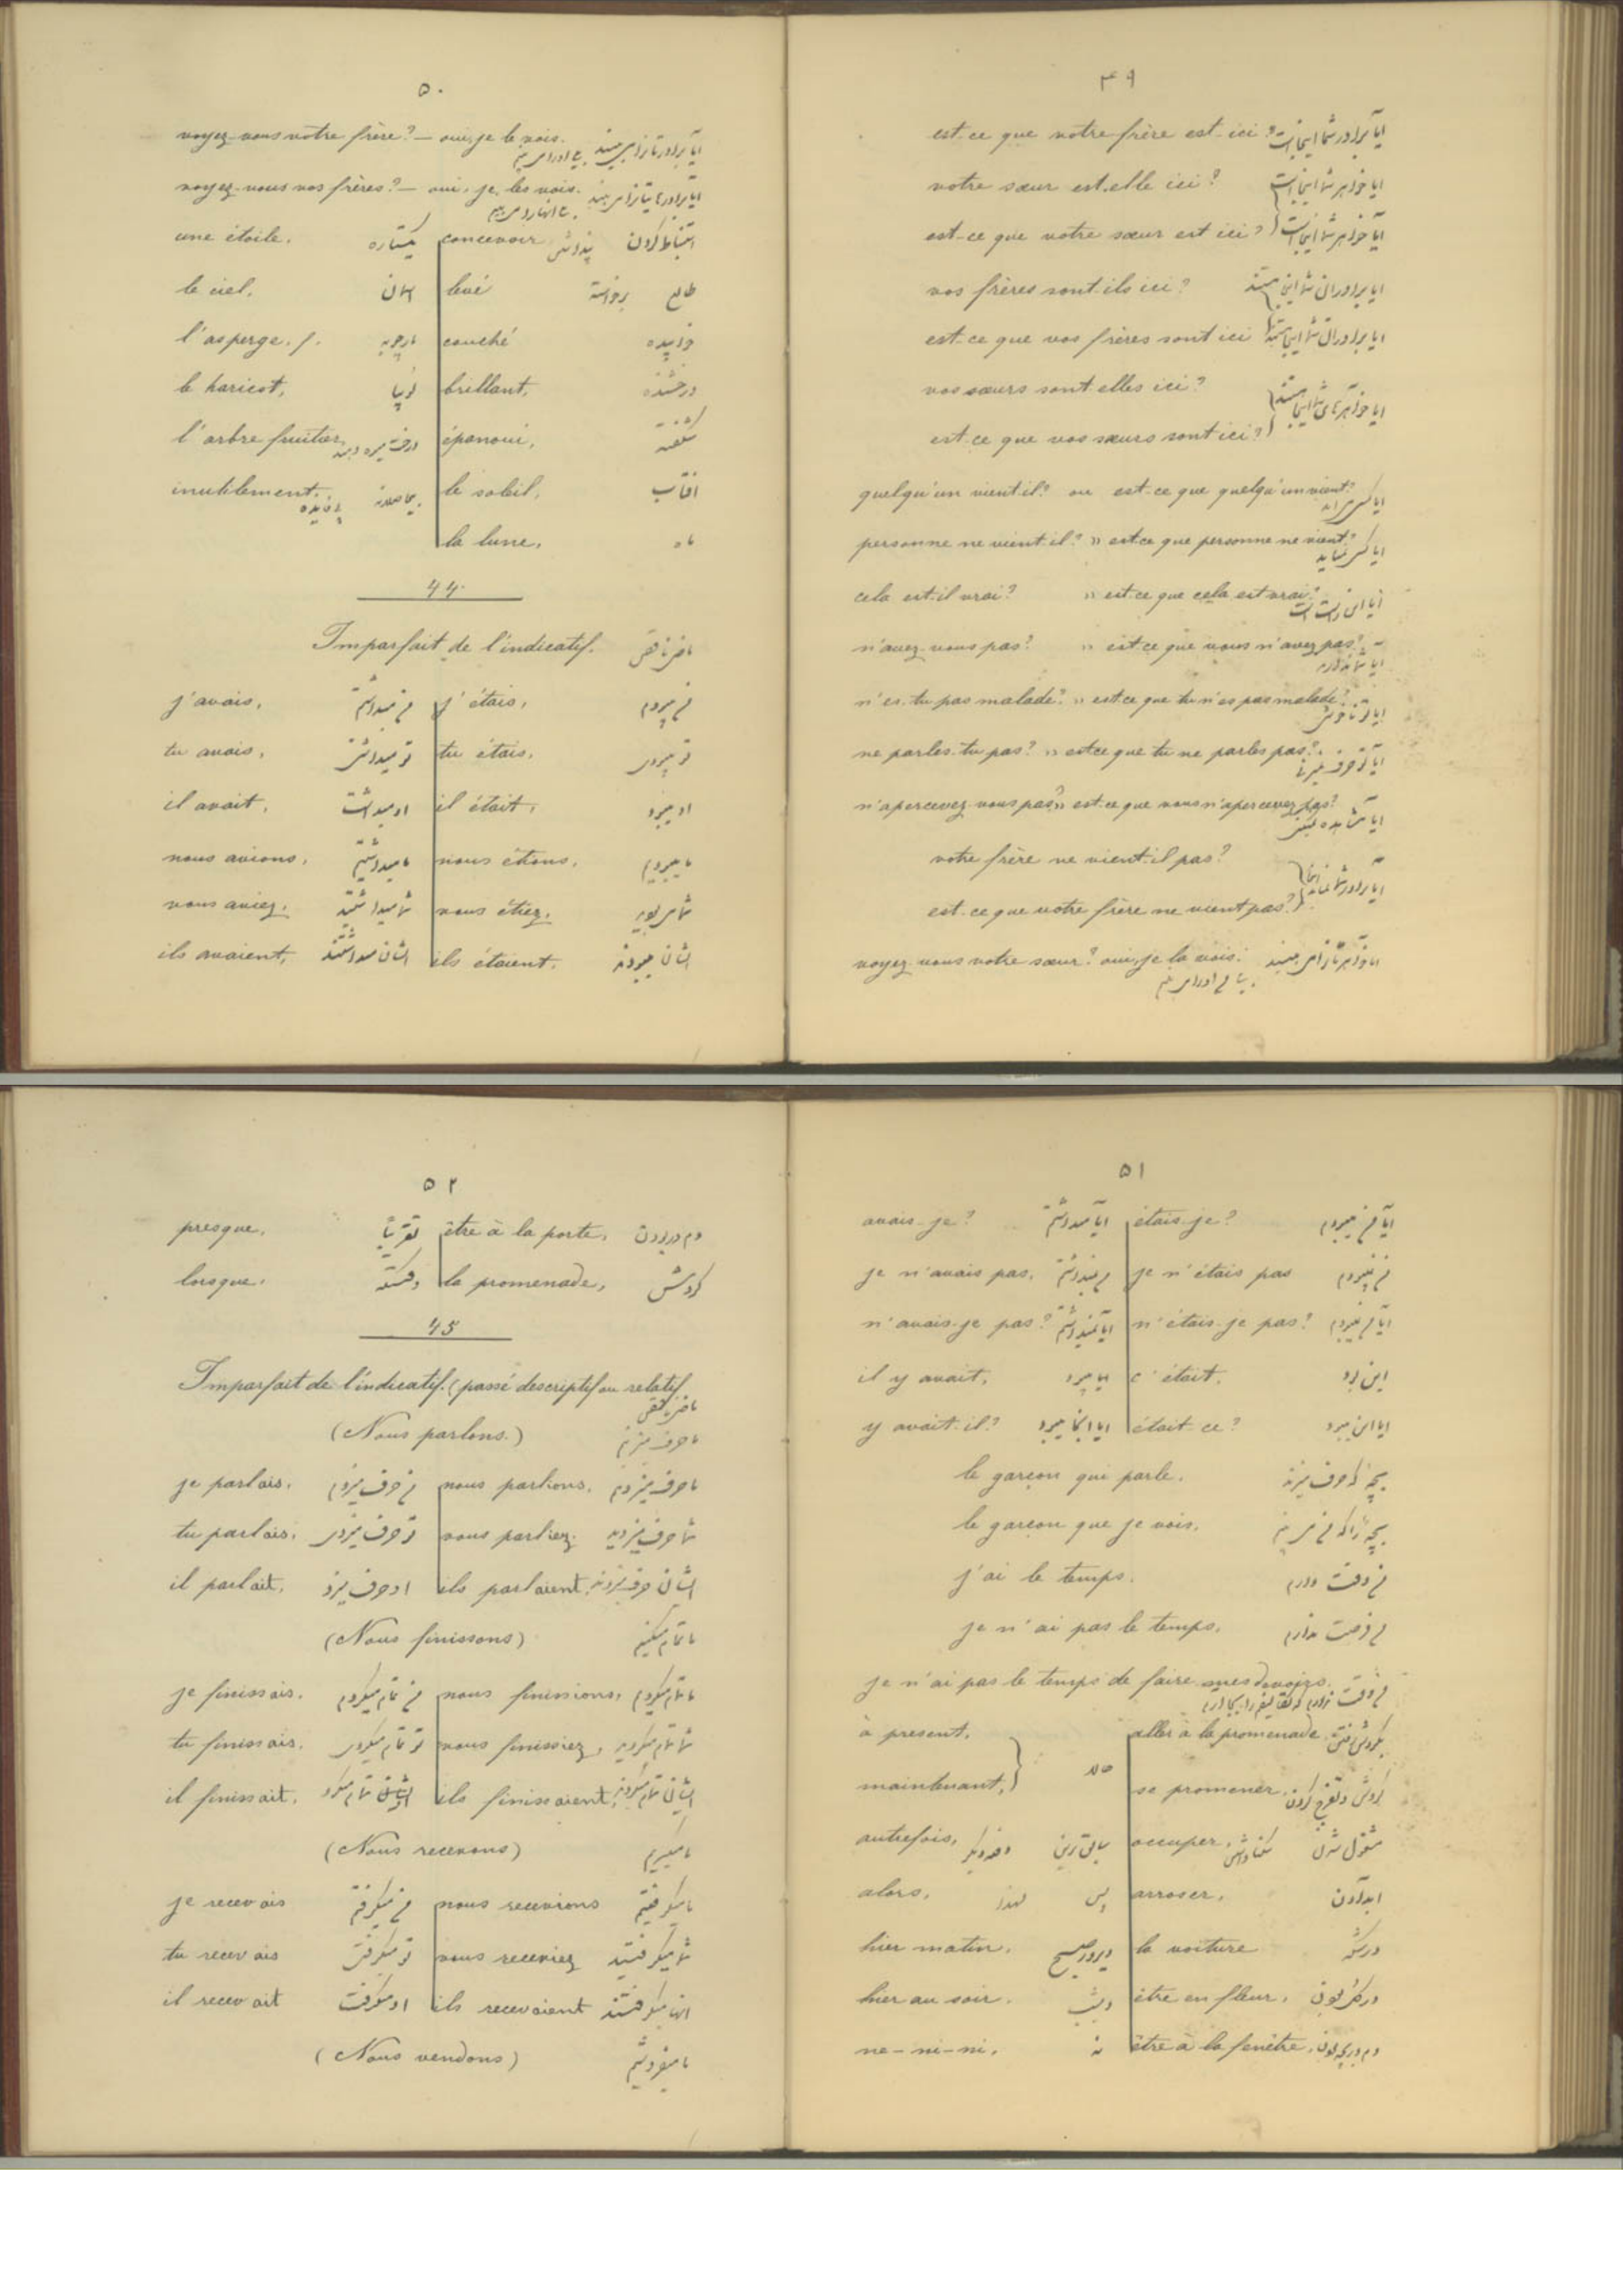 ۴۹
est-ce que votre frère est ici? آیا برادر شما اینجاست
votre sœur est-elle ici? آیا خواهر شما اینجاست
est-ce que votre sœur est ici? آیا خواهر شما اینجاست
vos frères sont-ils ici? آیا برادران شما اینجا هستند
est-ce que vos frères sont ici آیا برادران شما اینجا هستند
vos sœurs sont-elles ici?
آیا خواهرهای شما اینجا هستند
est-ce que vos sœurs sont ici?
quelqu'un vient-il? ou est-ce que quelqu'un vient?
personne ne vient-il? " est-ce que personne ne vient?
cela est-il vrai? " est-ce que cela est vrai?
آیا این راست است
n'avez-vous pas? " est-ce que vous n'avez pas?
آیا شما ندارید
n'es-tu pas malade? " est-ce que tu n'es pas malade?
ne parles-tu pas? " est-ce que tu ne parles pas?
n'apercevez-vous pas? " est-ce que vous n'apercevez pas?
votre frère ne vient-il pas?
est-ce que votre frère ne vient pas?
voyez-vous votre sœur? oui, je la vois.
۵۰
voyez-vous votre frère? — oui, je le vois.
voyez-vous vos frères? — oui, je les vois.
une étoile. یکستاره concevoir
le ciel, آسمان levé طالع
l'asperge. f. مارچوبه couché خوابیده
le haricot, لوبیا brillant, درخشنده
l'arbre fruitier درخت میوه épanoui, شکفته
inutilement. بیفایده le soleil, آفتاب
la lune, ماه
44
Imparfait de l'indicatif. ماضی ناقص
j'avais, من میداشتم j'étais, من میبودم
tu avais, تو میداشتی tu étais, تو میبودی
il avait, او میداشت il était, او میبود
nous avions, ما میداشتیم nous étions, ما میبودیم
vous aviez, شما میداشتید vous étiez, شما می بودید
ils avaient, ایشان میداشتند ils étaient. ایشان میبودند
۵۱
avais-je? آیا میداشتم étais-je? آیا من میبودم
je n'avais pas. من نمیداشتم je n'étais pas من نمیبودم
n'avais-je pas? آیا نمیداشتم n'étais-je pas? آیا من نمیبودم
il y avait, c'était. این بود
y avait-il? آیا اینجا میبود était-ce? آیا این میبود
le garçon qui parle.
le garçon que je vois.
j'ai le temps. من وقت دارم
je n'ai pas le temps. من فرصت ندارم
je n'ai pas le temps de faire mes devoirs.
à présent, aller à la promenade
maintenant, حالا se promener
autrefois, occuper, مشغول شدن
alors, پس لهذا arroser,
hier matin, دیروز صبح la voiture درشکه
hier au soir. دیشب être en fleur,
ne-ni-ni, نه être à la fenêtre,
۵۲
presque, تقریباً être à la porte, دم در بودن
lorsque, وقتیکه la promenade, گردش
45
Imparfait de l'indicatif. (passé descriptif ou relatif
(Nous parlons.) ما حرف میزنیم
je parlais, من حرف میزدم nous parlions, ما حرف میزدیم
tu parlais, تو حرف میزدی vous parliez, شما حرف میزدید
il parlait, او حرف میزد ils parlaient. ایشان حرف میزدند
(Nous finissons) ما تمام میکنیم
je finissais. من تمام میکردم nous finissions, ما تمام میکردیم
tu finissais. تو تمام میکردی vous finissiez, شما تمام میکردید
il finissait. تمام میکرد ils finissaient, ایشان تمام میکردند
(Nous recevons) ما میگیریم
je recevais من میگرفتم nous recevions ما میگرفتیم
tu recevais تو میگرفتی vous receviez شما میگرفتید
il recevait او میگرفت ils recevaient آنها میگرفتند
(Nous vendons) ما میفروشیم